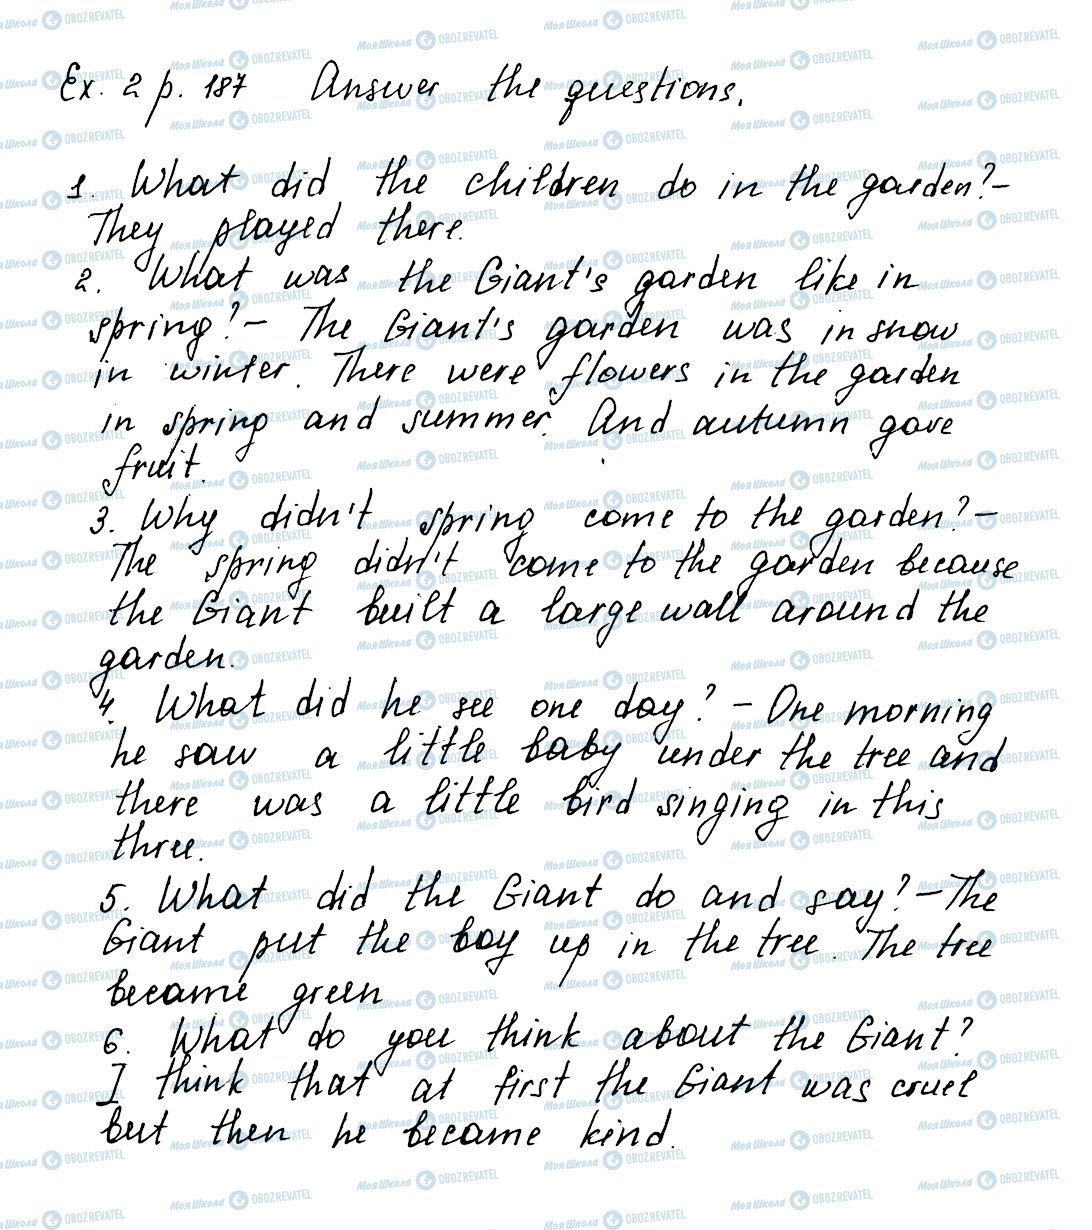 Ex. 2 p. 187 Answer the questions.
1. What did the children do in the garden? –
They played there.
2. What was the Giant's garden like in
spring? – The Giant's garden was in snow
in winter. There were flowers in the garden
in spring and summer. And autumn gave
fruit.
3. Why didn't spring come to the garden? –
The spring didn't come to the garden because
the Giant built a large wall around the
garden.
4. What did he see one day? – One morning
he saw a little baby under the tree and
there was a little bird singing in this
three.
5. What did the Giant do and say? – The
Giant put the boy up in the tree. The tree
became green
6. What do you think about the Giant?
I think that at first the Giant was cruel
but then he became kind.
МояШкола OBOZREVATEL